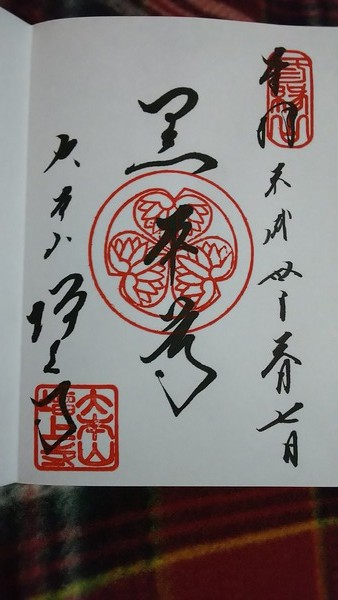 奉拝
平成 月七日
黒本尊
大本山
増上寺
大本山
増上寺